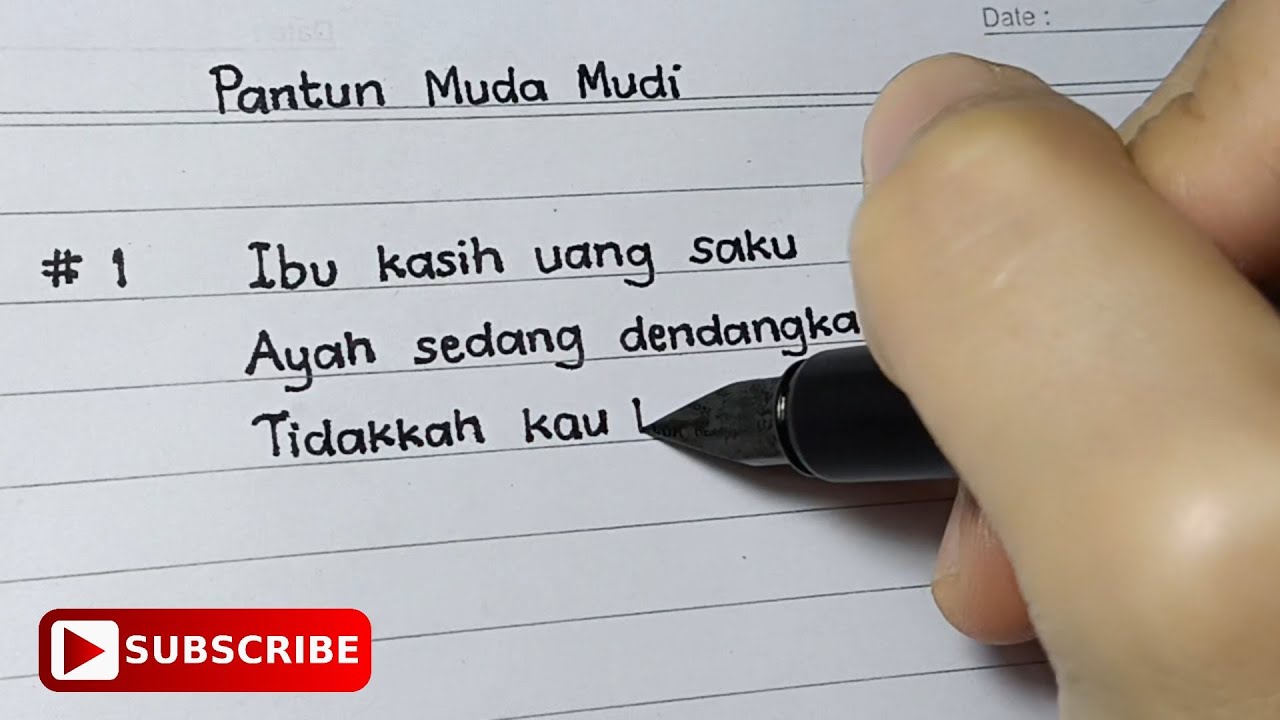 Date :
Pantun Muda Mudi
# 1 Ibu kasih uang saku
Ayah sedang dendangka
Tidakkah kau
SUBSCRIBE